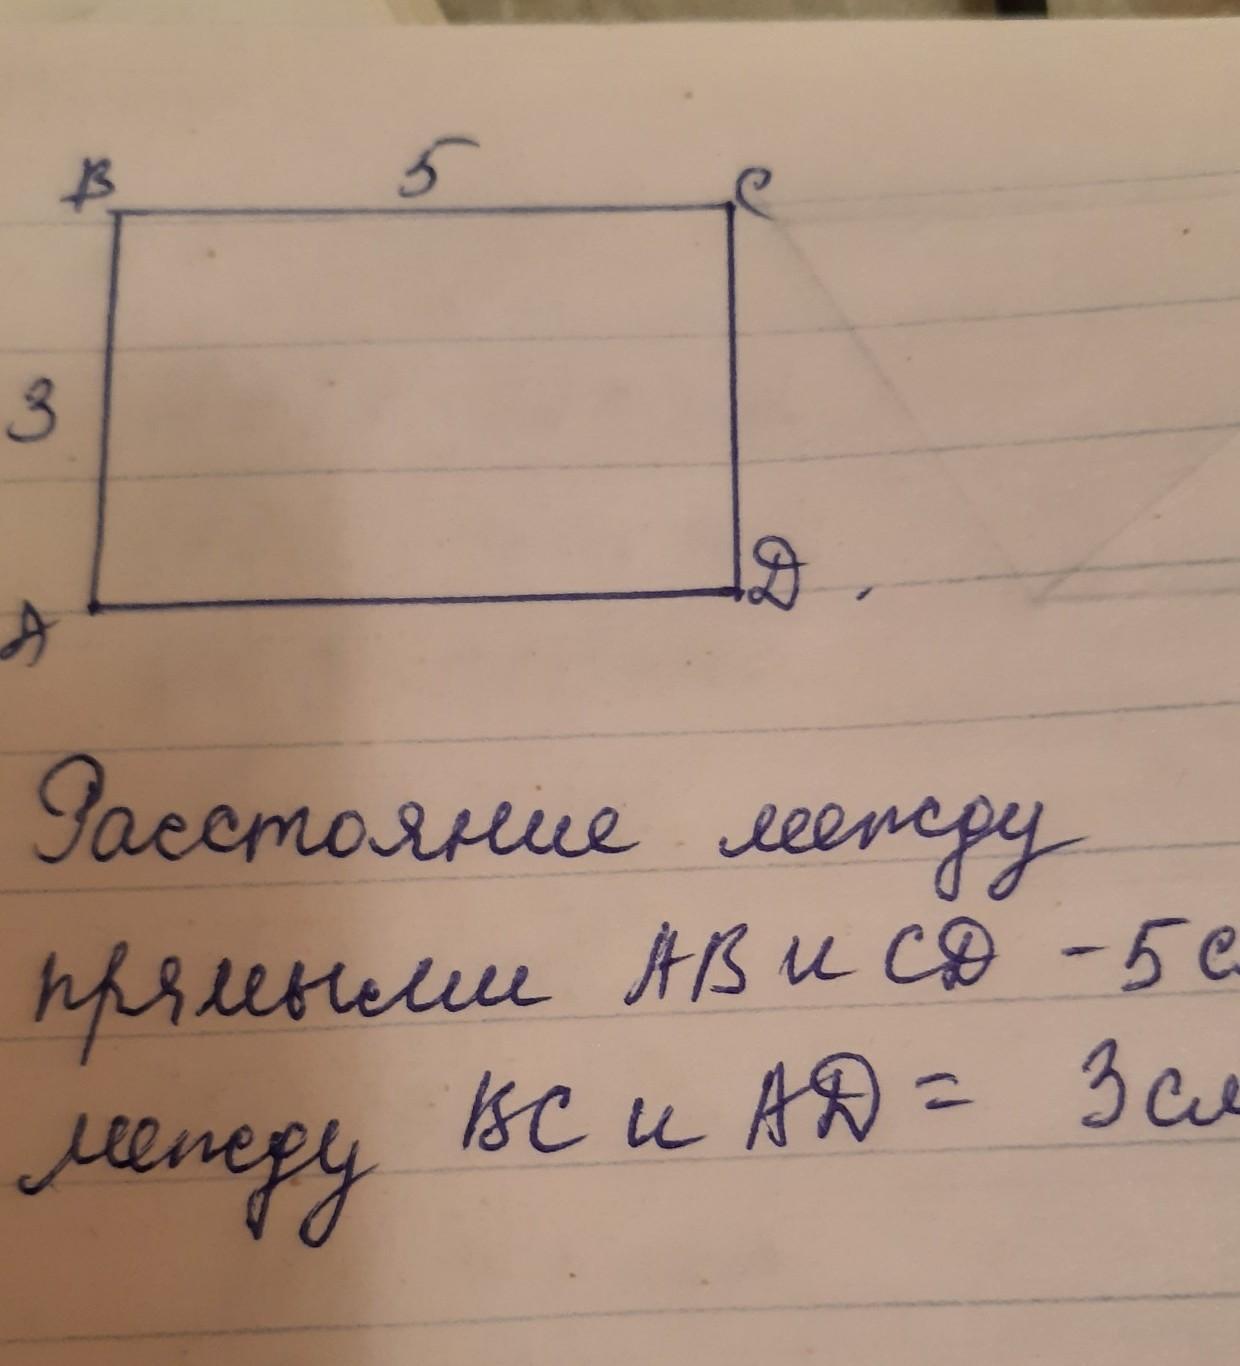 B 5 C
3
A D
Расстояние между
прямыми AB и CD - 5 с
между BC и AD = 3 см